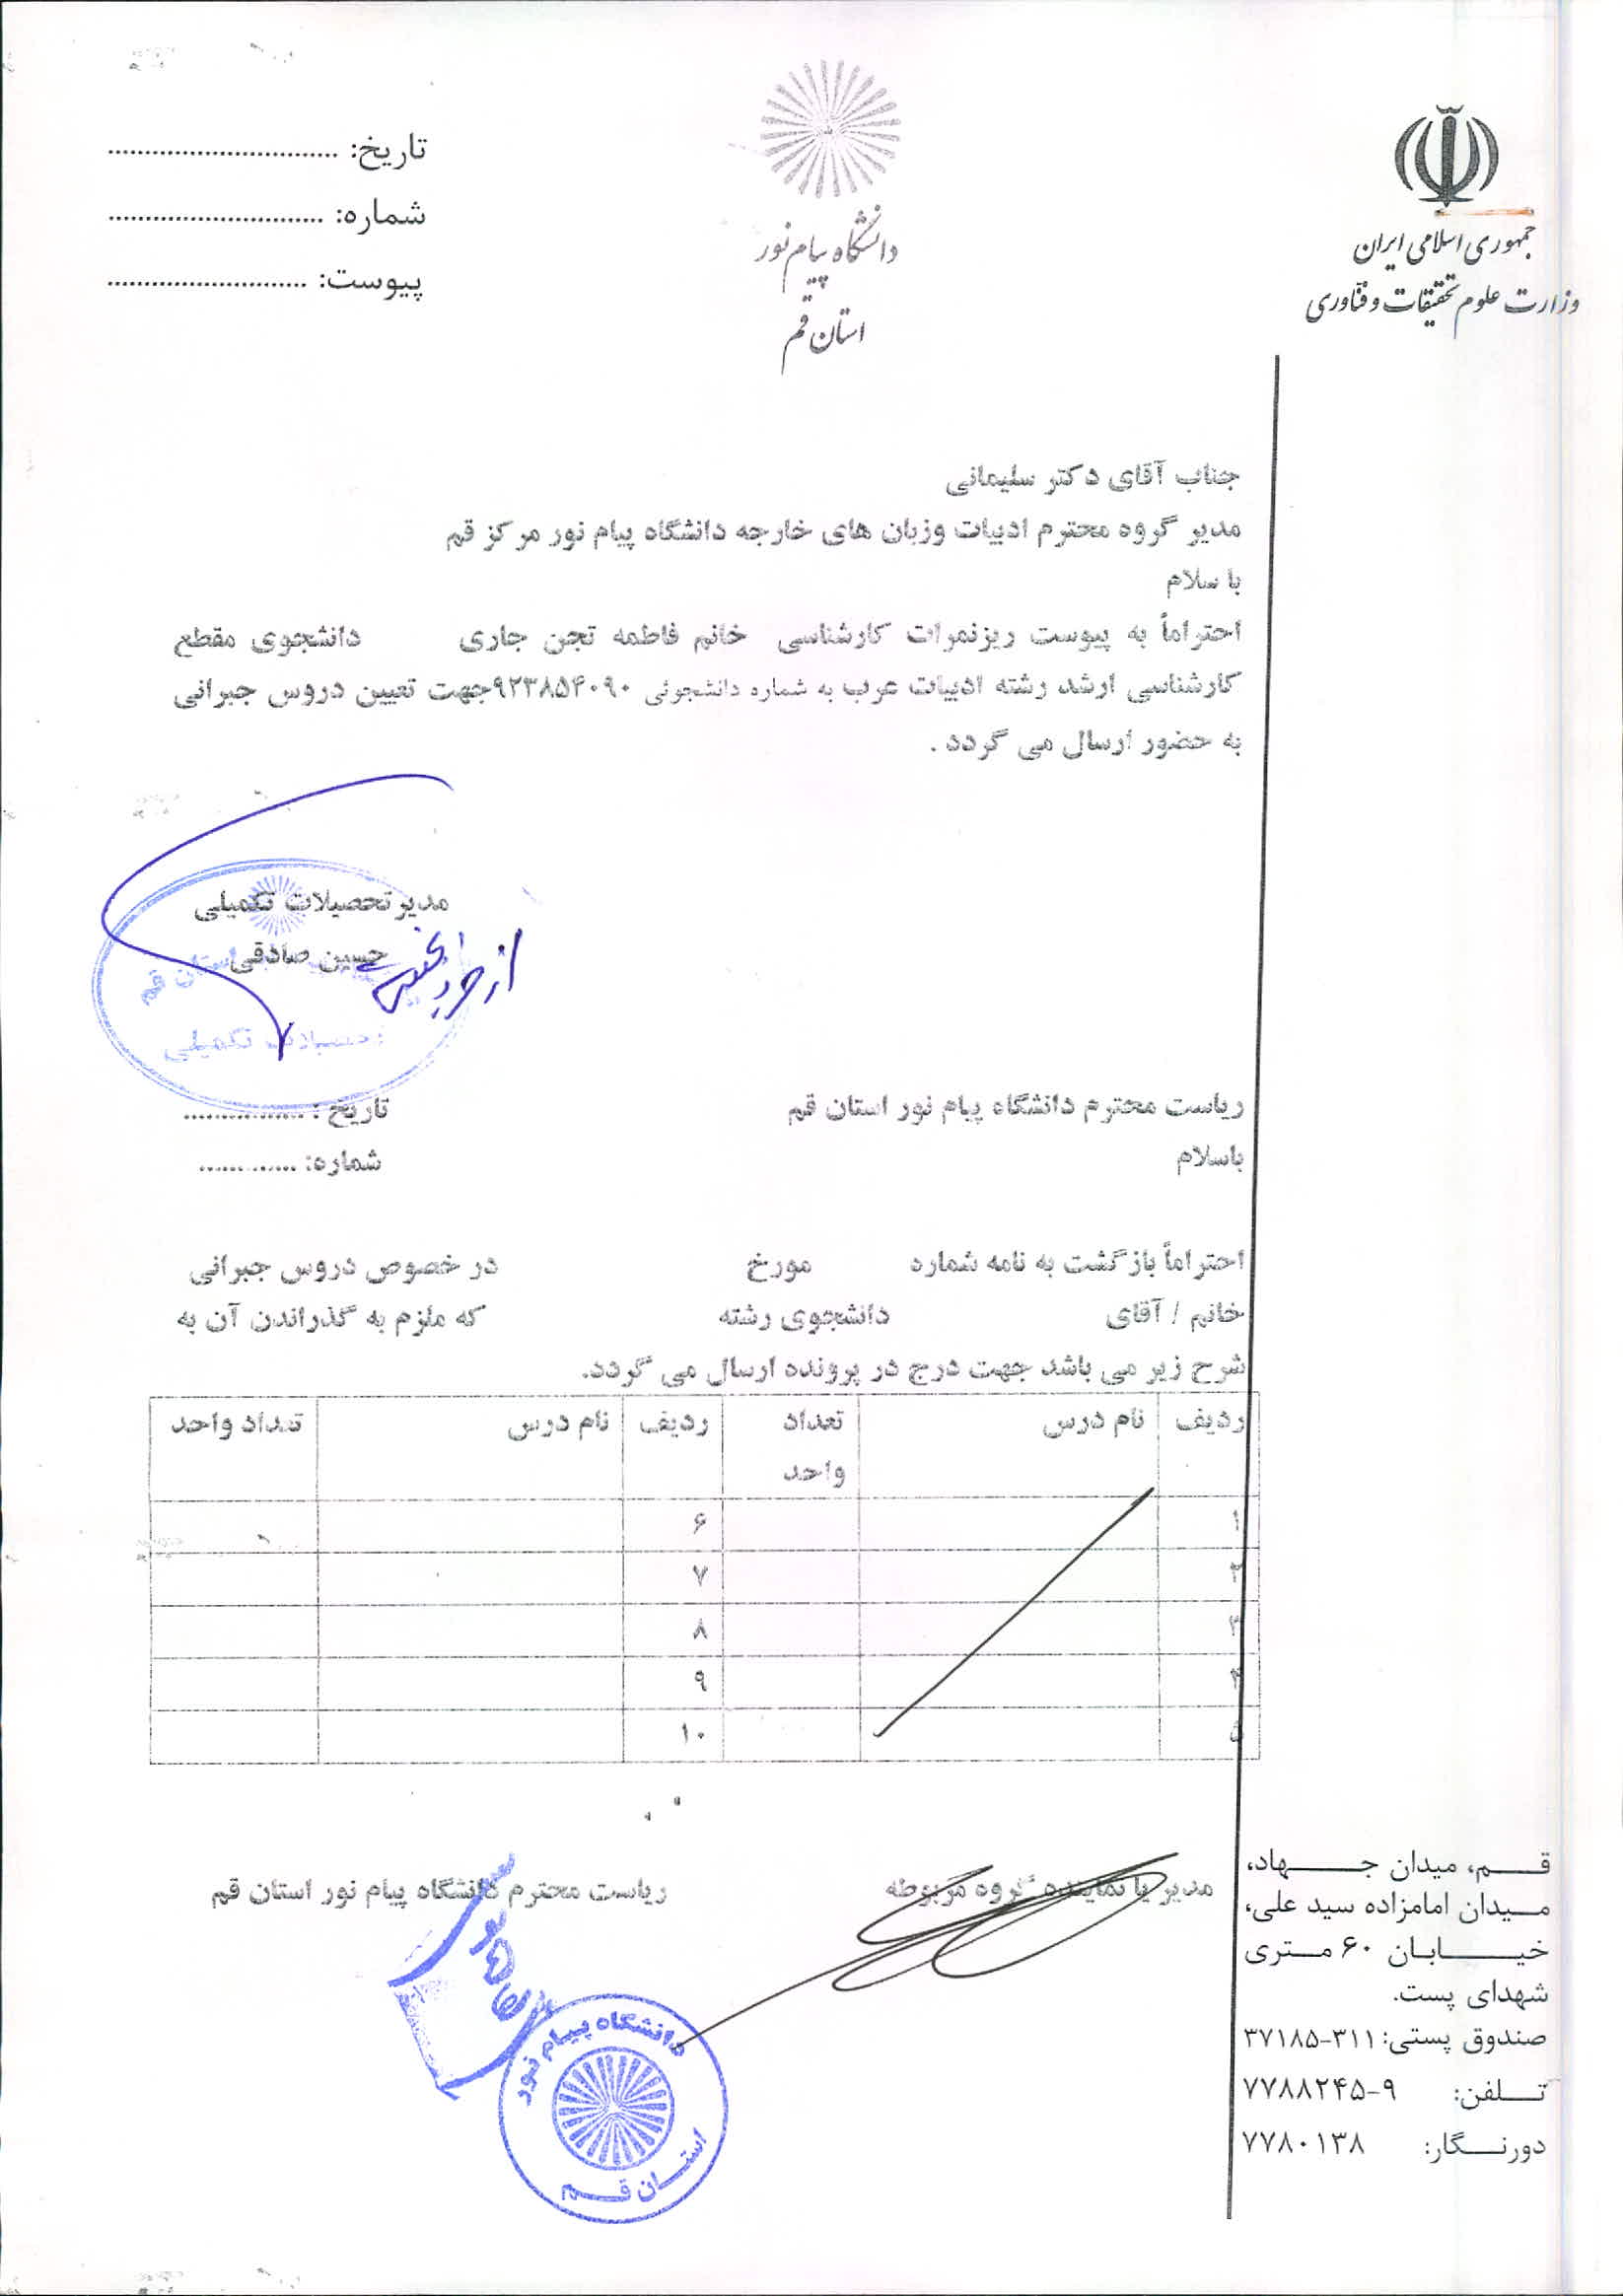 جمهوری اسلامی ایران
وزارت علوم تحقیقات و فناوری
دانشگاه پیام نور
استان قم
تاریخ: ................................
شماره: ..............................
پیوست: ............................
جناب آقای دکتر سلیمانی
مدیر گروه محترم ادبیات وزبان های خارجه دانشگاه پیام نور مرکز قم
با سلام
احتراماً به پیوست ریزنمرات کارشناسی خانم فاطمه تجن جاری دانشجوی مقطع
کارشناسی ارشد رشته ادبیات عرب به شماره دانشجوئی ۹۲۳۸۵۴۰۹۰جهت تعیین دروس جبرانی
به حضور ارسال می گردد .
مدیر تحصیلات تکمیلی
حسین صادقی
استان قم
تکمیلی
ریاست محترم دانشگاه پیام نور استان قم
تاریخ : ................
باسلام
شماره: .............
احتراماً بازگشت به نامه شماره مورخ در خصوص دروس جبرانی
خانم / آقای دانشجوی رشته که ملزم به گذراندن آن به
شرح زیر می باشد جهت درج در پرونده ارسال می گردد.
ردیف نام درس تعداد واحد ردیف نام درس تعداد واحد
۱ ۶
۲ ۷
۳ ۸
۴ ۹
۵ ۱۰
مدیر یا نماینده گروه مربوطه ریاست محترم دانشگاه پیام نور استان قم
دانشگاه پیام نور
استان قم
قم، میدان جهاد،
میدان امامزاده سید علی،
خیابان ۶۰ متری
شهدای پست.
صندوق پستی: ۳۱۱-۳۷۱۸۵
تلفن: ۹-۷۷۸۸۲۴۵
دورنگار: ۷۷۸۰۱۳۸